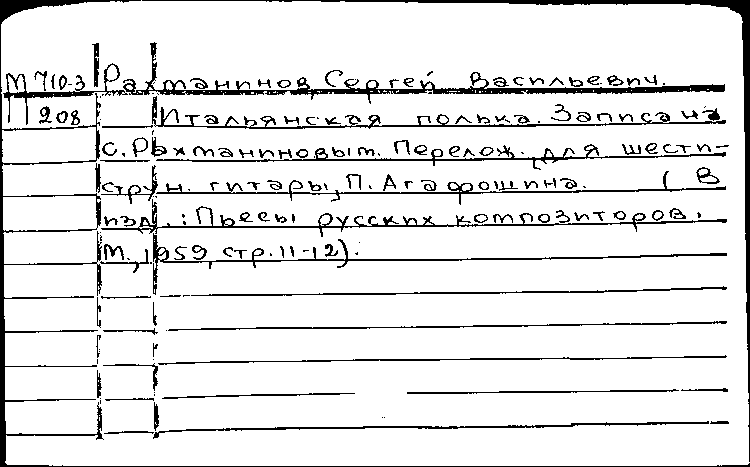 М 710-3 Рахманинов, Сергей Васильевич.
П 208 Итальянская полька. Записана
С. Рахманиновым. Перелож. для шести-
струн. гитары, П. Агафошина. ( В
изд.: Пьесы русских композиторов.
М., 1959, стр. 11-12).